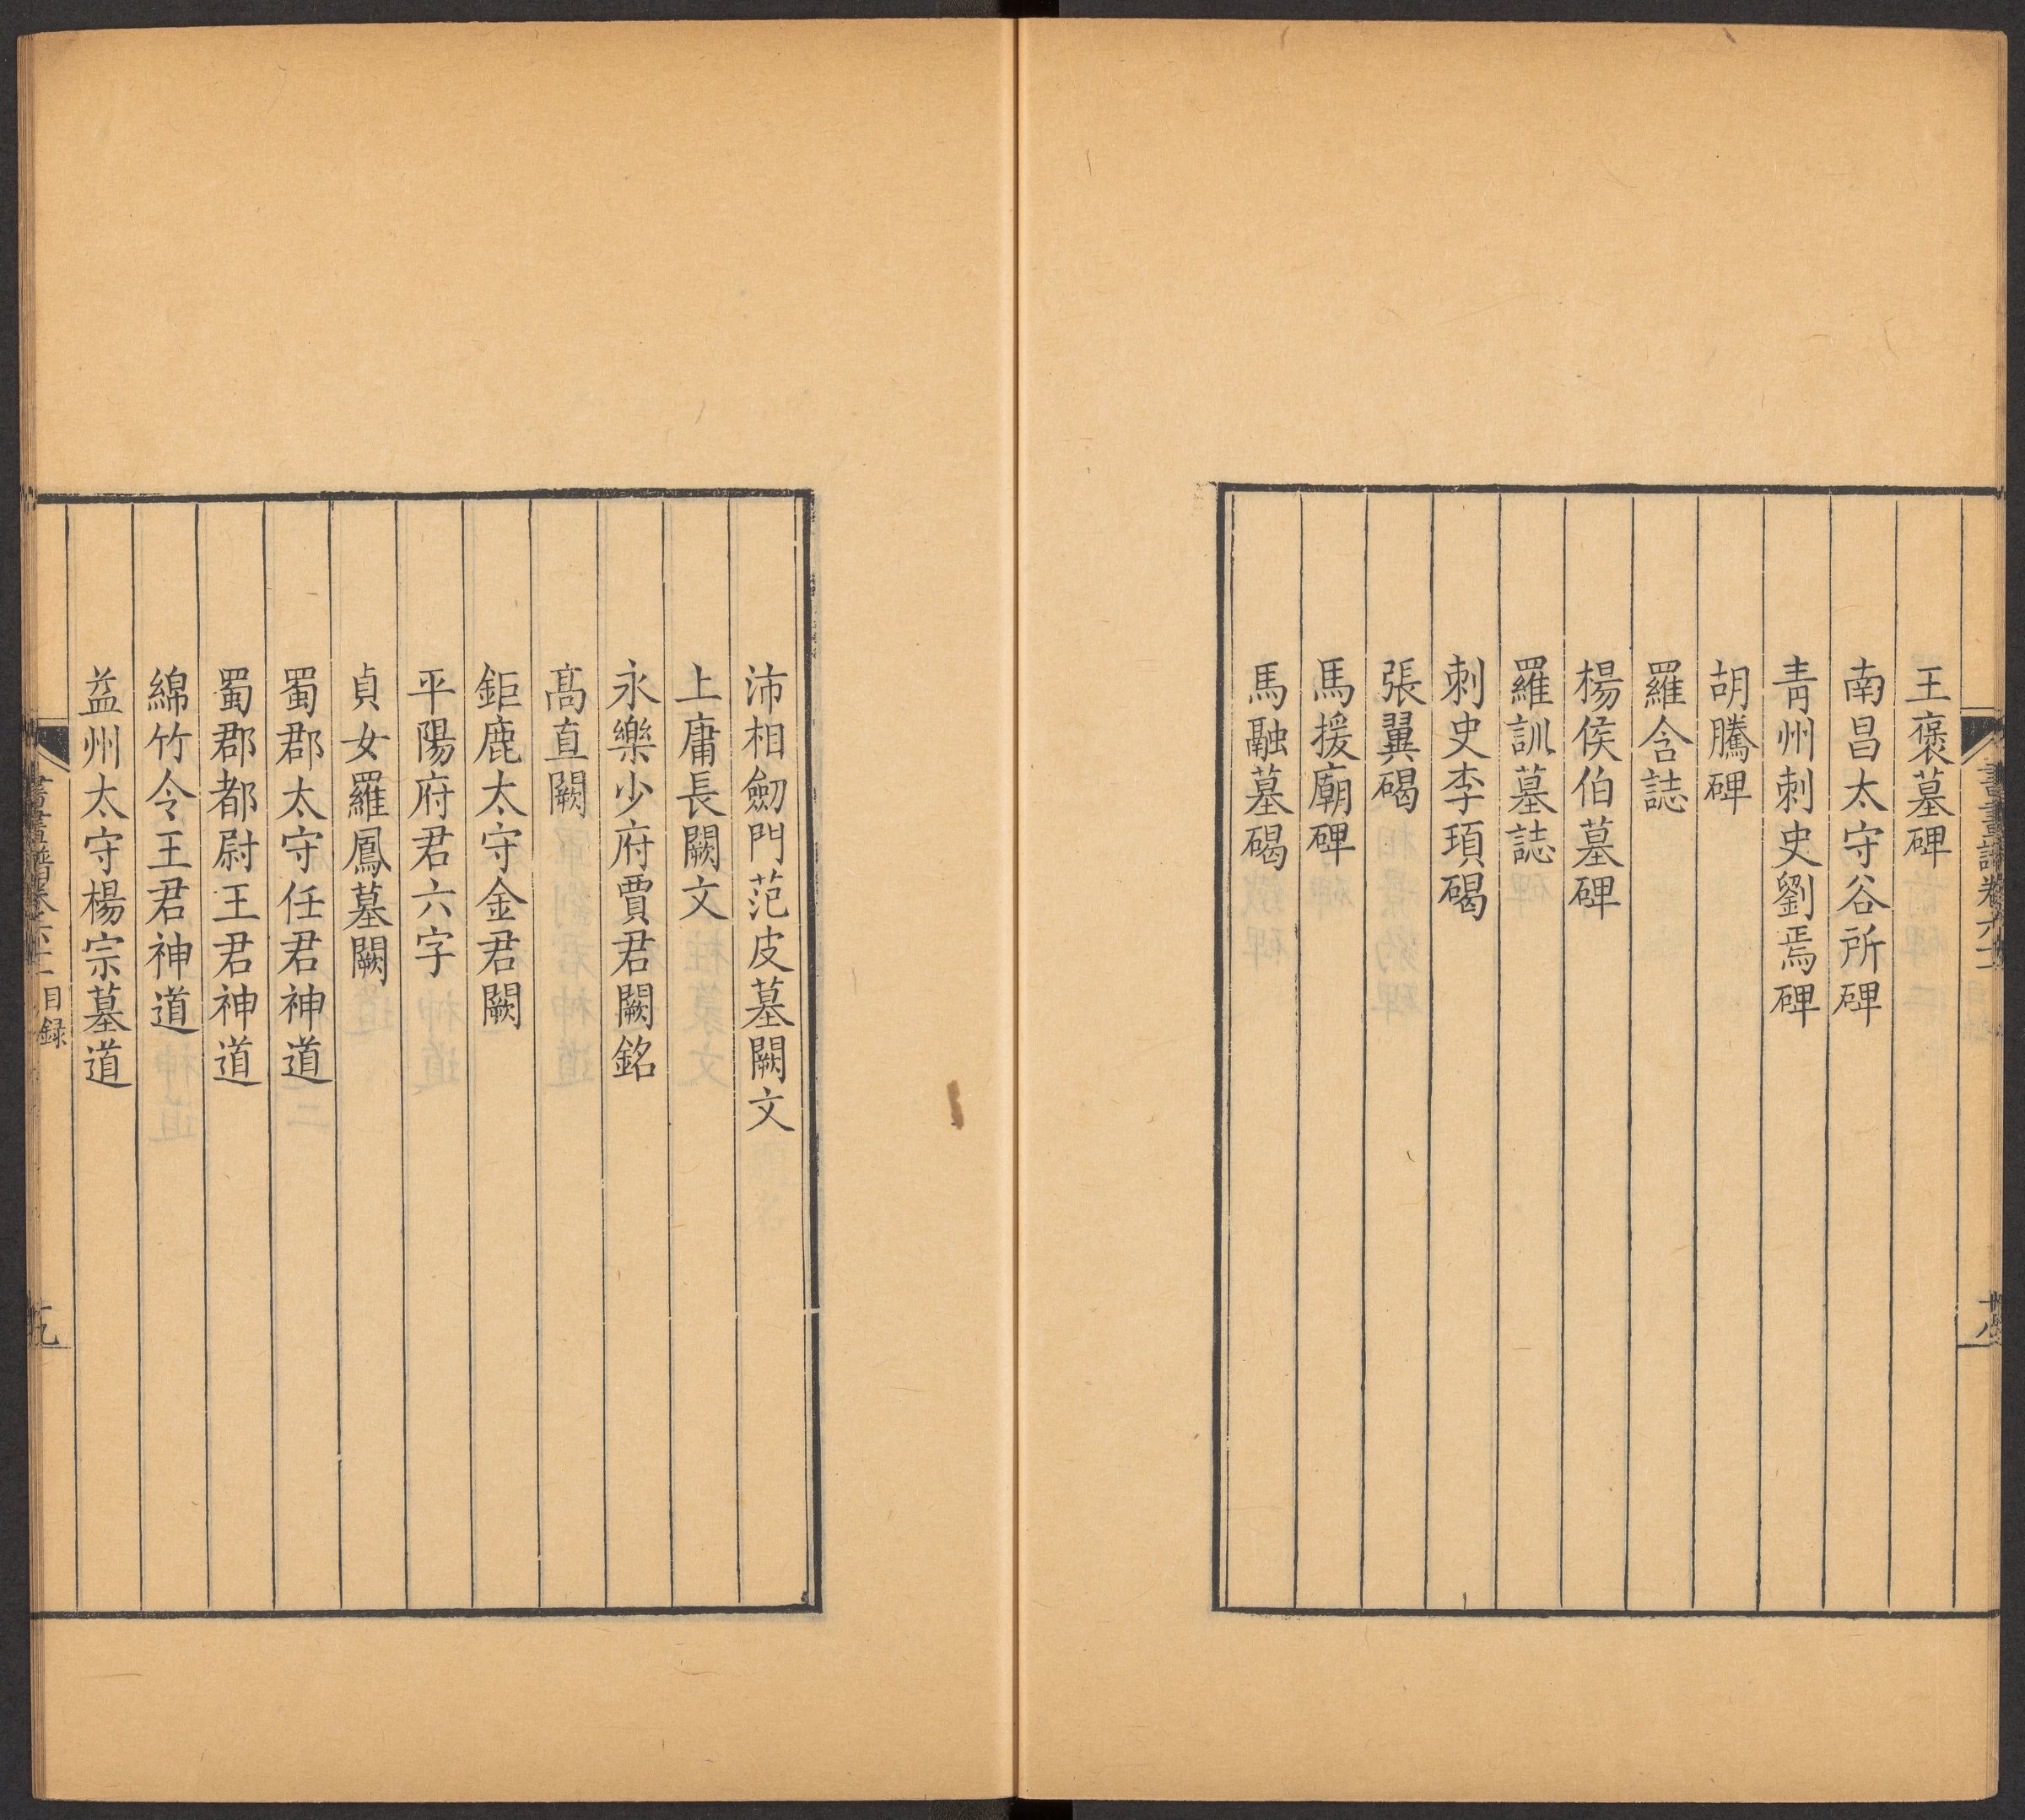 王褒墓碑
南昌太守谷所碑
青州刺史劉焉碑
胡騰碑
羅含誌
楊侯伯墓碑
羅訓墓誌
刺史李頊碣
張翼碣
馬援廟碑
馬融墓碣
沛相劒門范皮墓闕文
上庸長闕文
永樂少府賈君闕銘
髙直闕
鉅鹿太守金君闕
平陽府君六字
貞女羅鳳墓闕
蜀郡太守任君神道
蜀郡都尉王君神道
綿竹令王君神道
益州太守楊宗墓道
目録